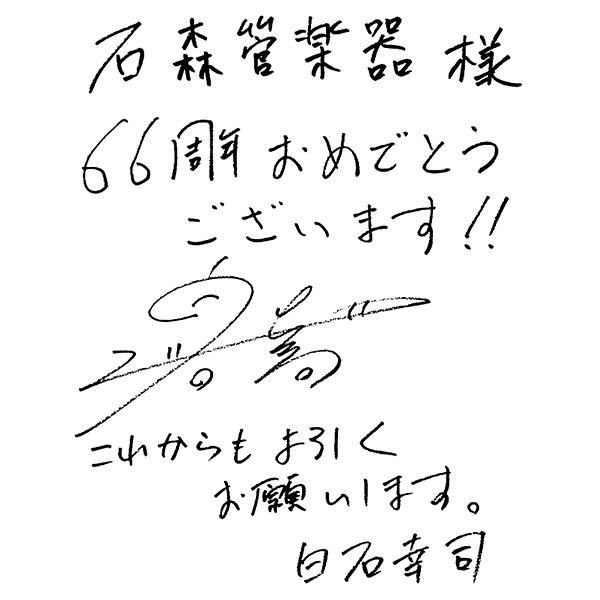 石森管楽器 様
66周年 おめでとう
ございます!!
これからも よろしく
お願いします。
白石幸司